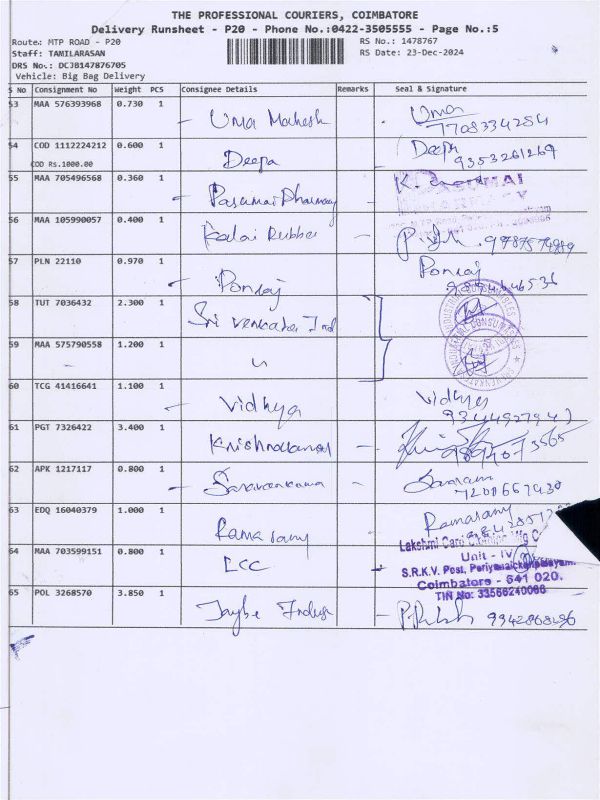 THE PROFESSIONAL COURIERS, COIMBATORE
Delivery Runsheet - P20 - Phone No.:0422-3505555 - Page No.:5
Route: MTP ROAD - P20 RS No.: 1478767
Staff: TAMILARASAN RS Date: 23-Dec-2024
DRS No.: DCJB147876705
Vehicle: Big Bag Delivery
S No Consignment No Weight PCS Consignee Details Remarks Seal & Signature
53 MAA 576393968 0.730 1 Uma Mahesh Uma
7708334284
54 COD 1112224212 0.600 1 Deepa Deepa
COD RS.1000.00 9353261269
55 MAA 705496568 0.360 1 Pasumai Pharmacy K.
56 MAA 105990057 0.400 1 Kalai Rubber
57 PLN 22110 0.970 1 Ponraj Ponraj
58 TUT 7036432 2.300 1 Sri Venkater Ind
59 MAA 575790558 1.200 1 "
60 TCG 41416641 1.100 1 Vidhya Vidhya
61 PGT 7326422 3.400 1
62 APK 1217117 0.800 1 Saravanakumar
7201667930
63 EDQ 16040379 1.000 1 Ramasamy Ramasamy
64 MAA 703599151 0.800 1 LCC
Unit - IV
S.R.K.V. Post, Periyanaickenpalayam
Coimbatore - 641 020.
TIN No: 33566240066
65 POL 3268570 3.850 1 9342868296